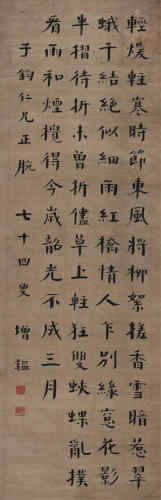 輕煖輕寒時節東風將柳絮搓香雪暗惹翠
蛾千結絕似細雨紅橋情人乍別緣窓花影
半摺待折未曾折儘草上輕狂雙蛺蝶亂撲
看雨和煙攪得今歲韶光不成三月
子鈞仁兄正腕 七十四叟 增韞